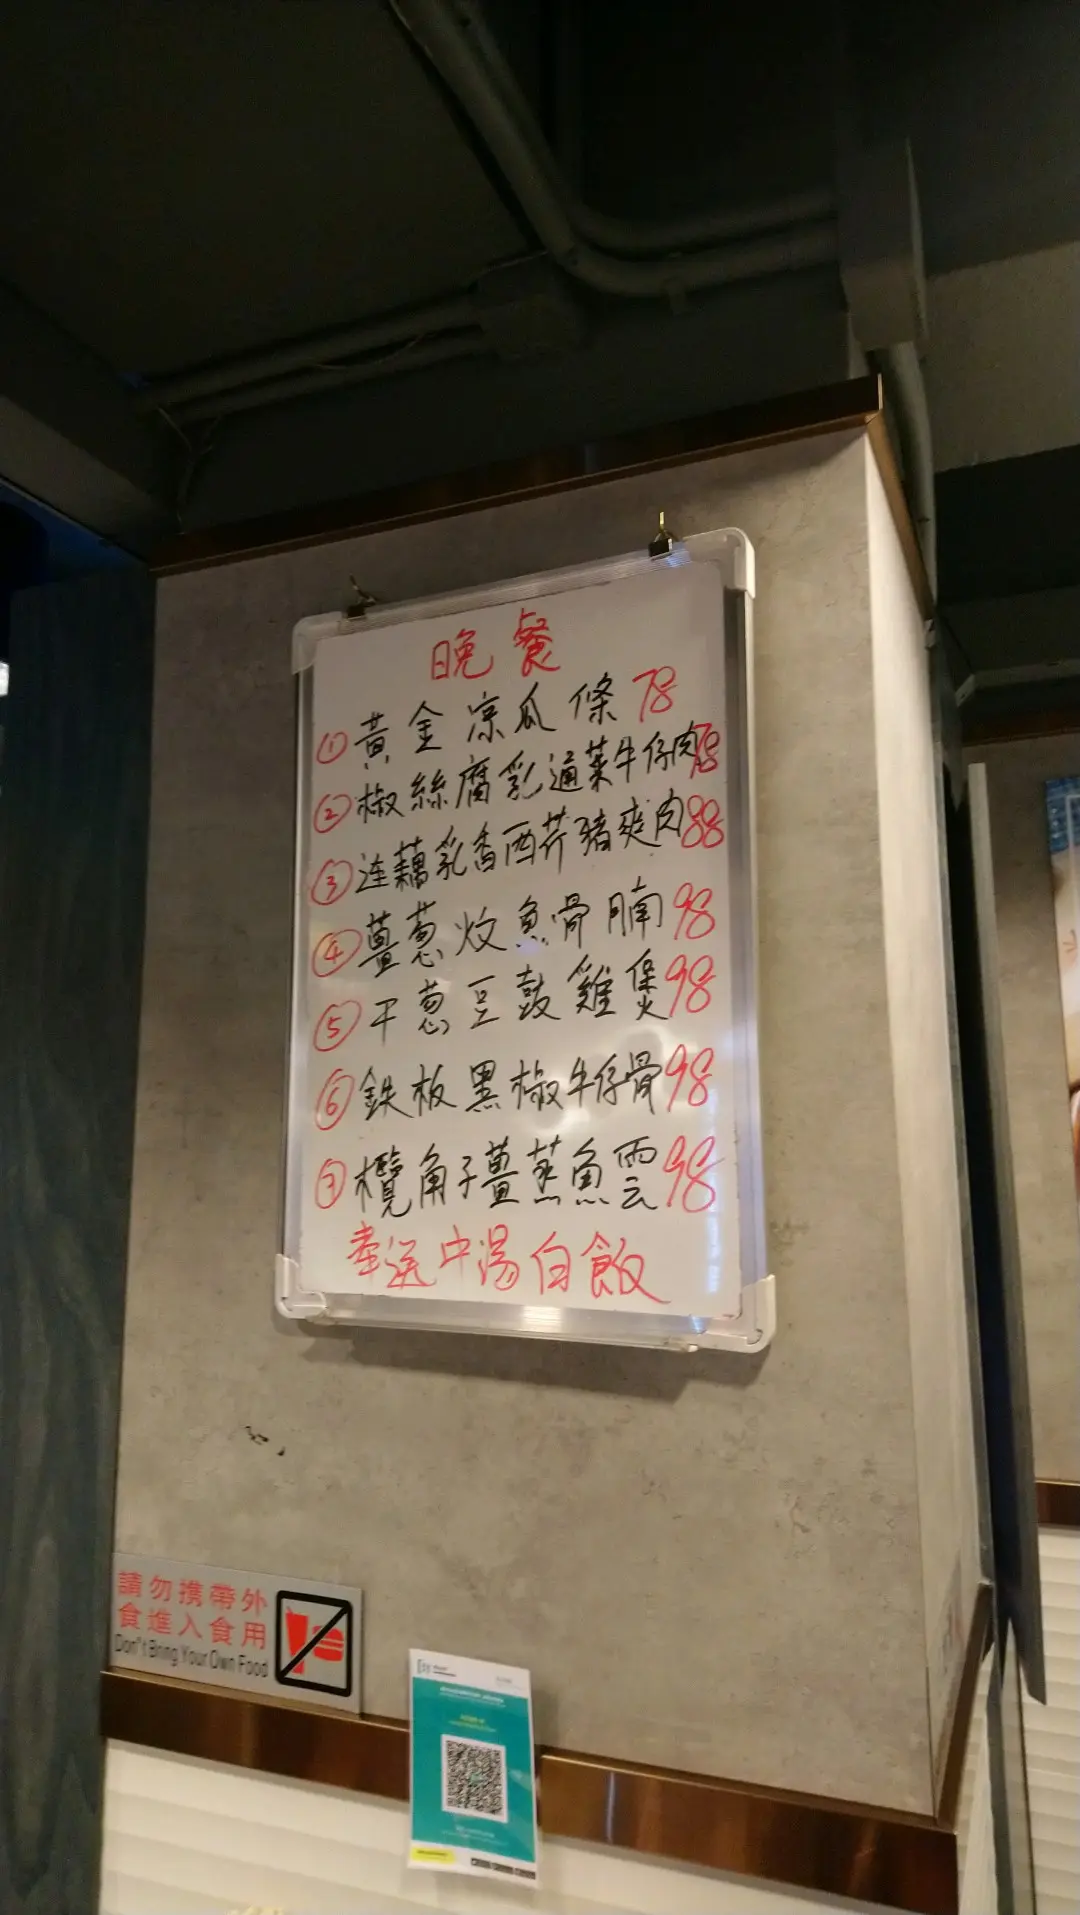 晚餐
① 黃金凉瓜條 78
② 椒絲腐乳通菜牛仔肉 78
③ 连藕乳香西芹豬爽肉 88
④ 薑葱炆魚骨腩 98
⑤ 干葱豆鼓雞煲 98
⑥ 鉄板黑椒牛仔骨 98
⑦ 欖角子薑蒸魚雲 98
奉送中湯白飯
請勿攜帶外
食進入食用
Don't Bring Your Own Food